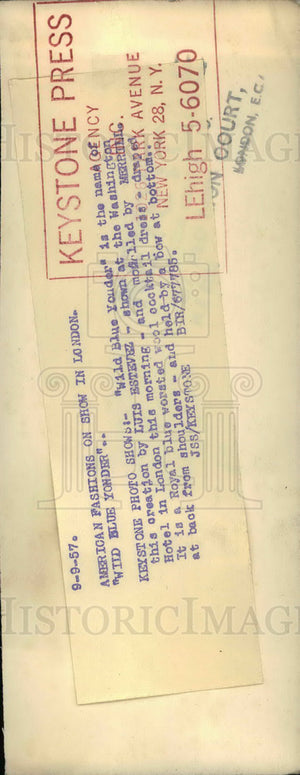 KEYSTONE PRESS
AGENCY
PARK AVENUE
NEW YORK 28, N. Y.
LEhigh 5-6070
ON COURT,
LONDON, E.C.
9-9-57.
AMERICAN FASHIONS ON SHOW IN LONDON.
"WILD BLUE YONDER"..
KEYSTONE PHOTO SHOWS:- "Wild Blue Yonder" is the name of
this creation by LUIS ESTEVEZ - shown at the Washington
Hotel in London this morning - and modelled by
It is a Royal blue worsted wool cocktail dress - draped
at back from shoulders - and held by a bow at bottom..
JSS/KEYSTONE BIR/677785.
HISTORIC IMAGES
HISTORIC IMAGES